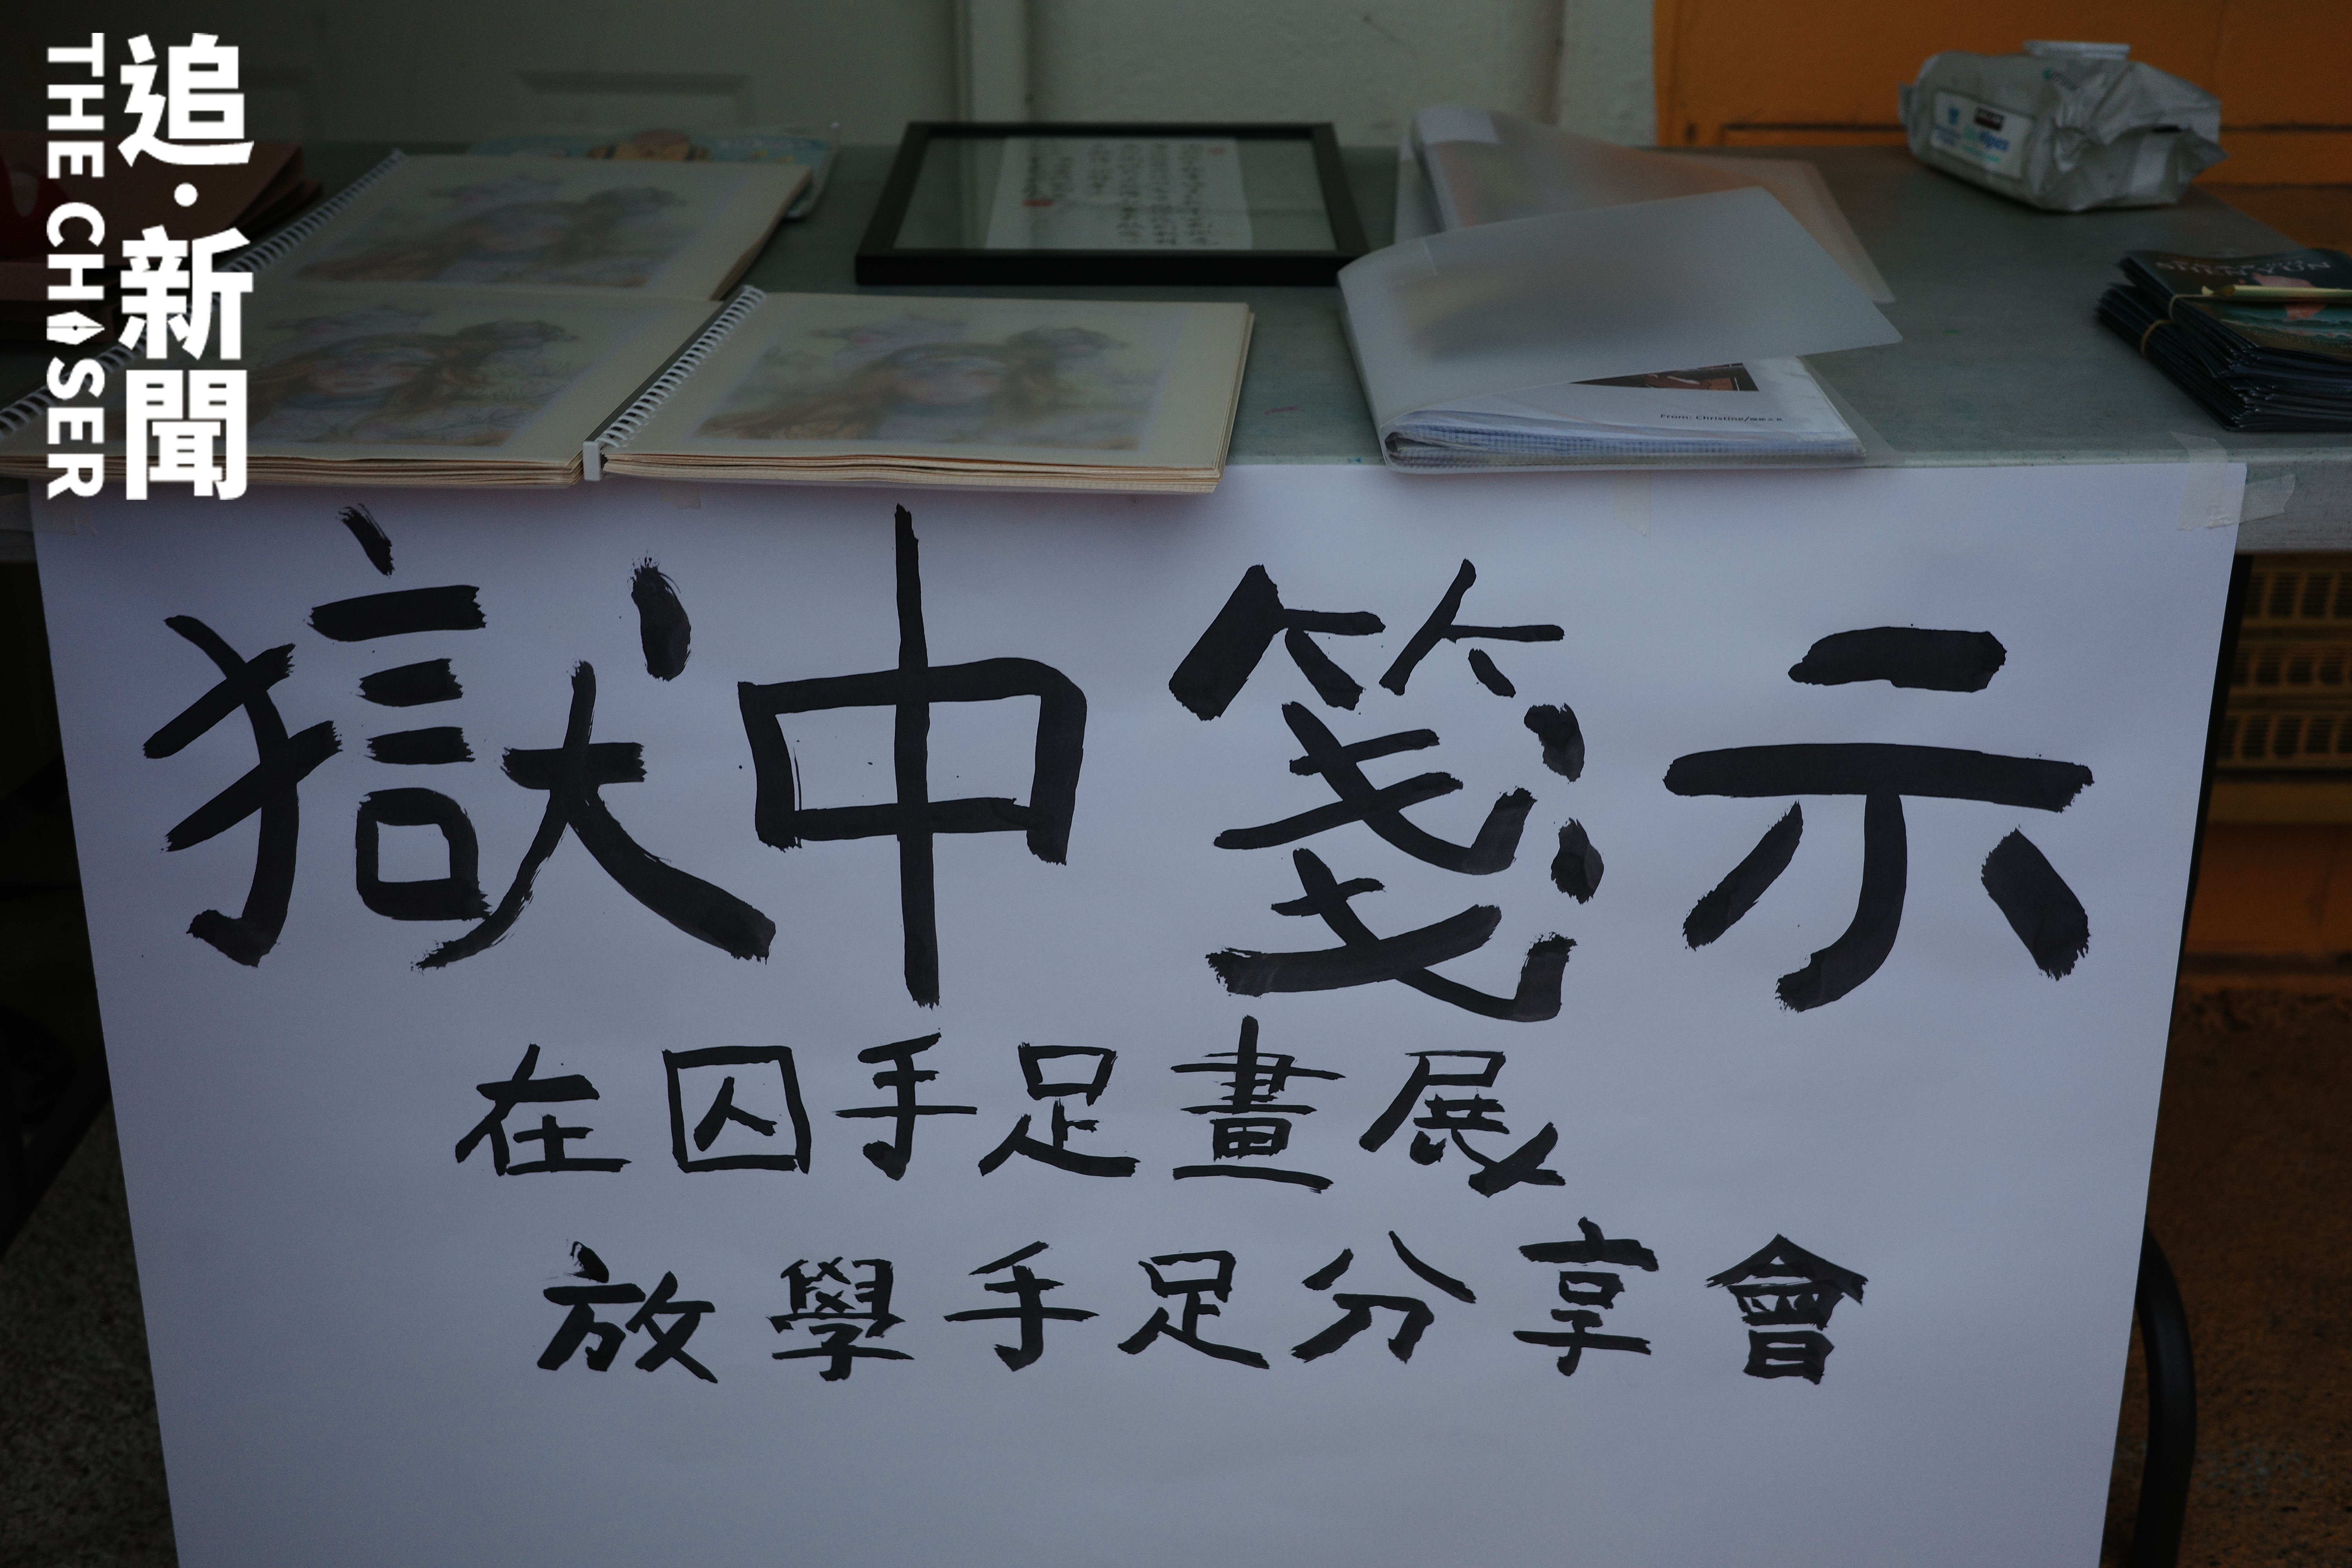 追·新聞
THE CHASER
From: Christine/
SHEN YUN
獄中箋示
在囚手足畫展
放學手足分享會